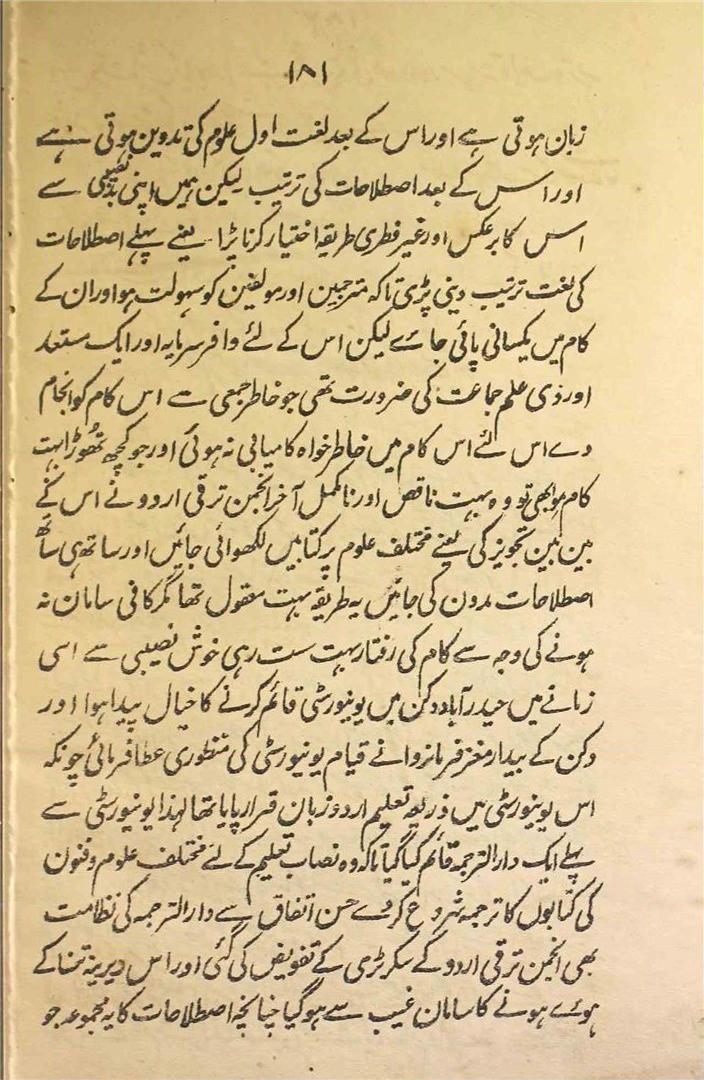 ۱۸۱
زبان ہوتی ہے اور اس کے بعد لغت اول علوم کی تدوین ہوتی ہے
اور اس کے بعد اصطلاحات کی ترتیب لیکن ہمیں اپنی بدنصیبی سے
اس کا برعکس اور غیر فطری طریقہ اختیار کرنا پڑا یعنے پہلے اصطلاحات
کی لغت ترتیب دینی پڑی تاکہ مترجمین اور مولفین کو سہولت ہو اور ان کے
کام میں یکسانی پائی جاے لیکن اس کے لئے وافر سرمایہ اور ایک مستعد
اور ذی علم جماعت کی ضرورت تھی جو خاطر جمعی سے اس کام کو انجام
دے اس لئے اس کام میں خاطر خواہ کامیابی نہ ہوئی اور جو کچھ تھوڑا بہت
کام ہوا بھی تو وہ بہت ناقص اور نامکمل آخر انجمن ترقی اردو نے اس کے
بین بین تجویز کی یعنے مختلف علوم پر کتابیں لکھوائی جائیں اور ساتھ ہی ساتھ
اصطلاحات مدون کی جائیں یہ طریقہ بہت معقول تھا مگر کافی سامان نہ
ہونے کی وجہ سے کام کی رفتار بہت سست رہی خوش نصیبی سے اسی
زمانے میں حیدرآباد دکن میں یونیورسٹی قائم کرنے کا خیال پیدا ہوا اور
دکن کے بیدار مغز فرمانروا نے قیام یونیورسٹی کی منظوری عطا فرمائی چونکہ
اس یونیورسٹی میں ذریعہ تعلیم اردو زبان قرار پایا تھا لہذا یونیورسٹی سے
پہلے ایک دارالترجمہ قائم کیا گیا تاکہ وہ نصاب تعلیم کے لئے مختلف علوم و فنون
کی کتابوں کا ترجمہ شروع کر دے حسن اتفاق سے دارالترجمہ کی نظامت
بھی انجمن ترقی اردو کے سکرٹری کے تفویض کی گئی اور اس دیرینہ تمنا کے
ہوے ہونے کا سامان غیب سے ہو گیا چنانچہ اصطلاحات کا یہ مجموعہ جو